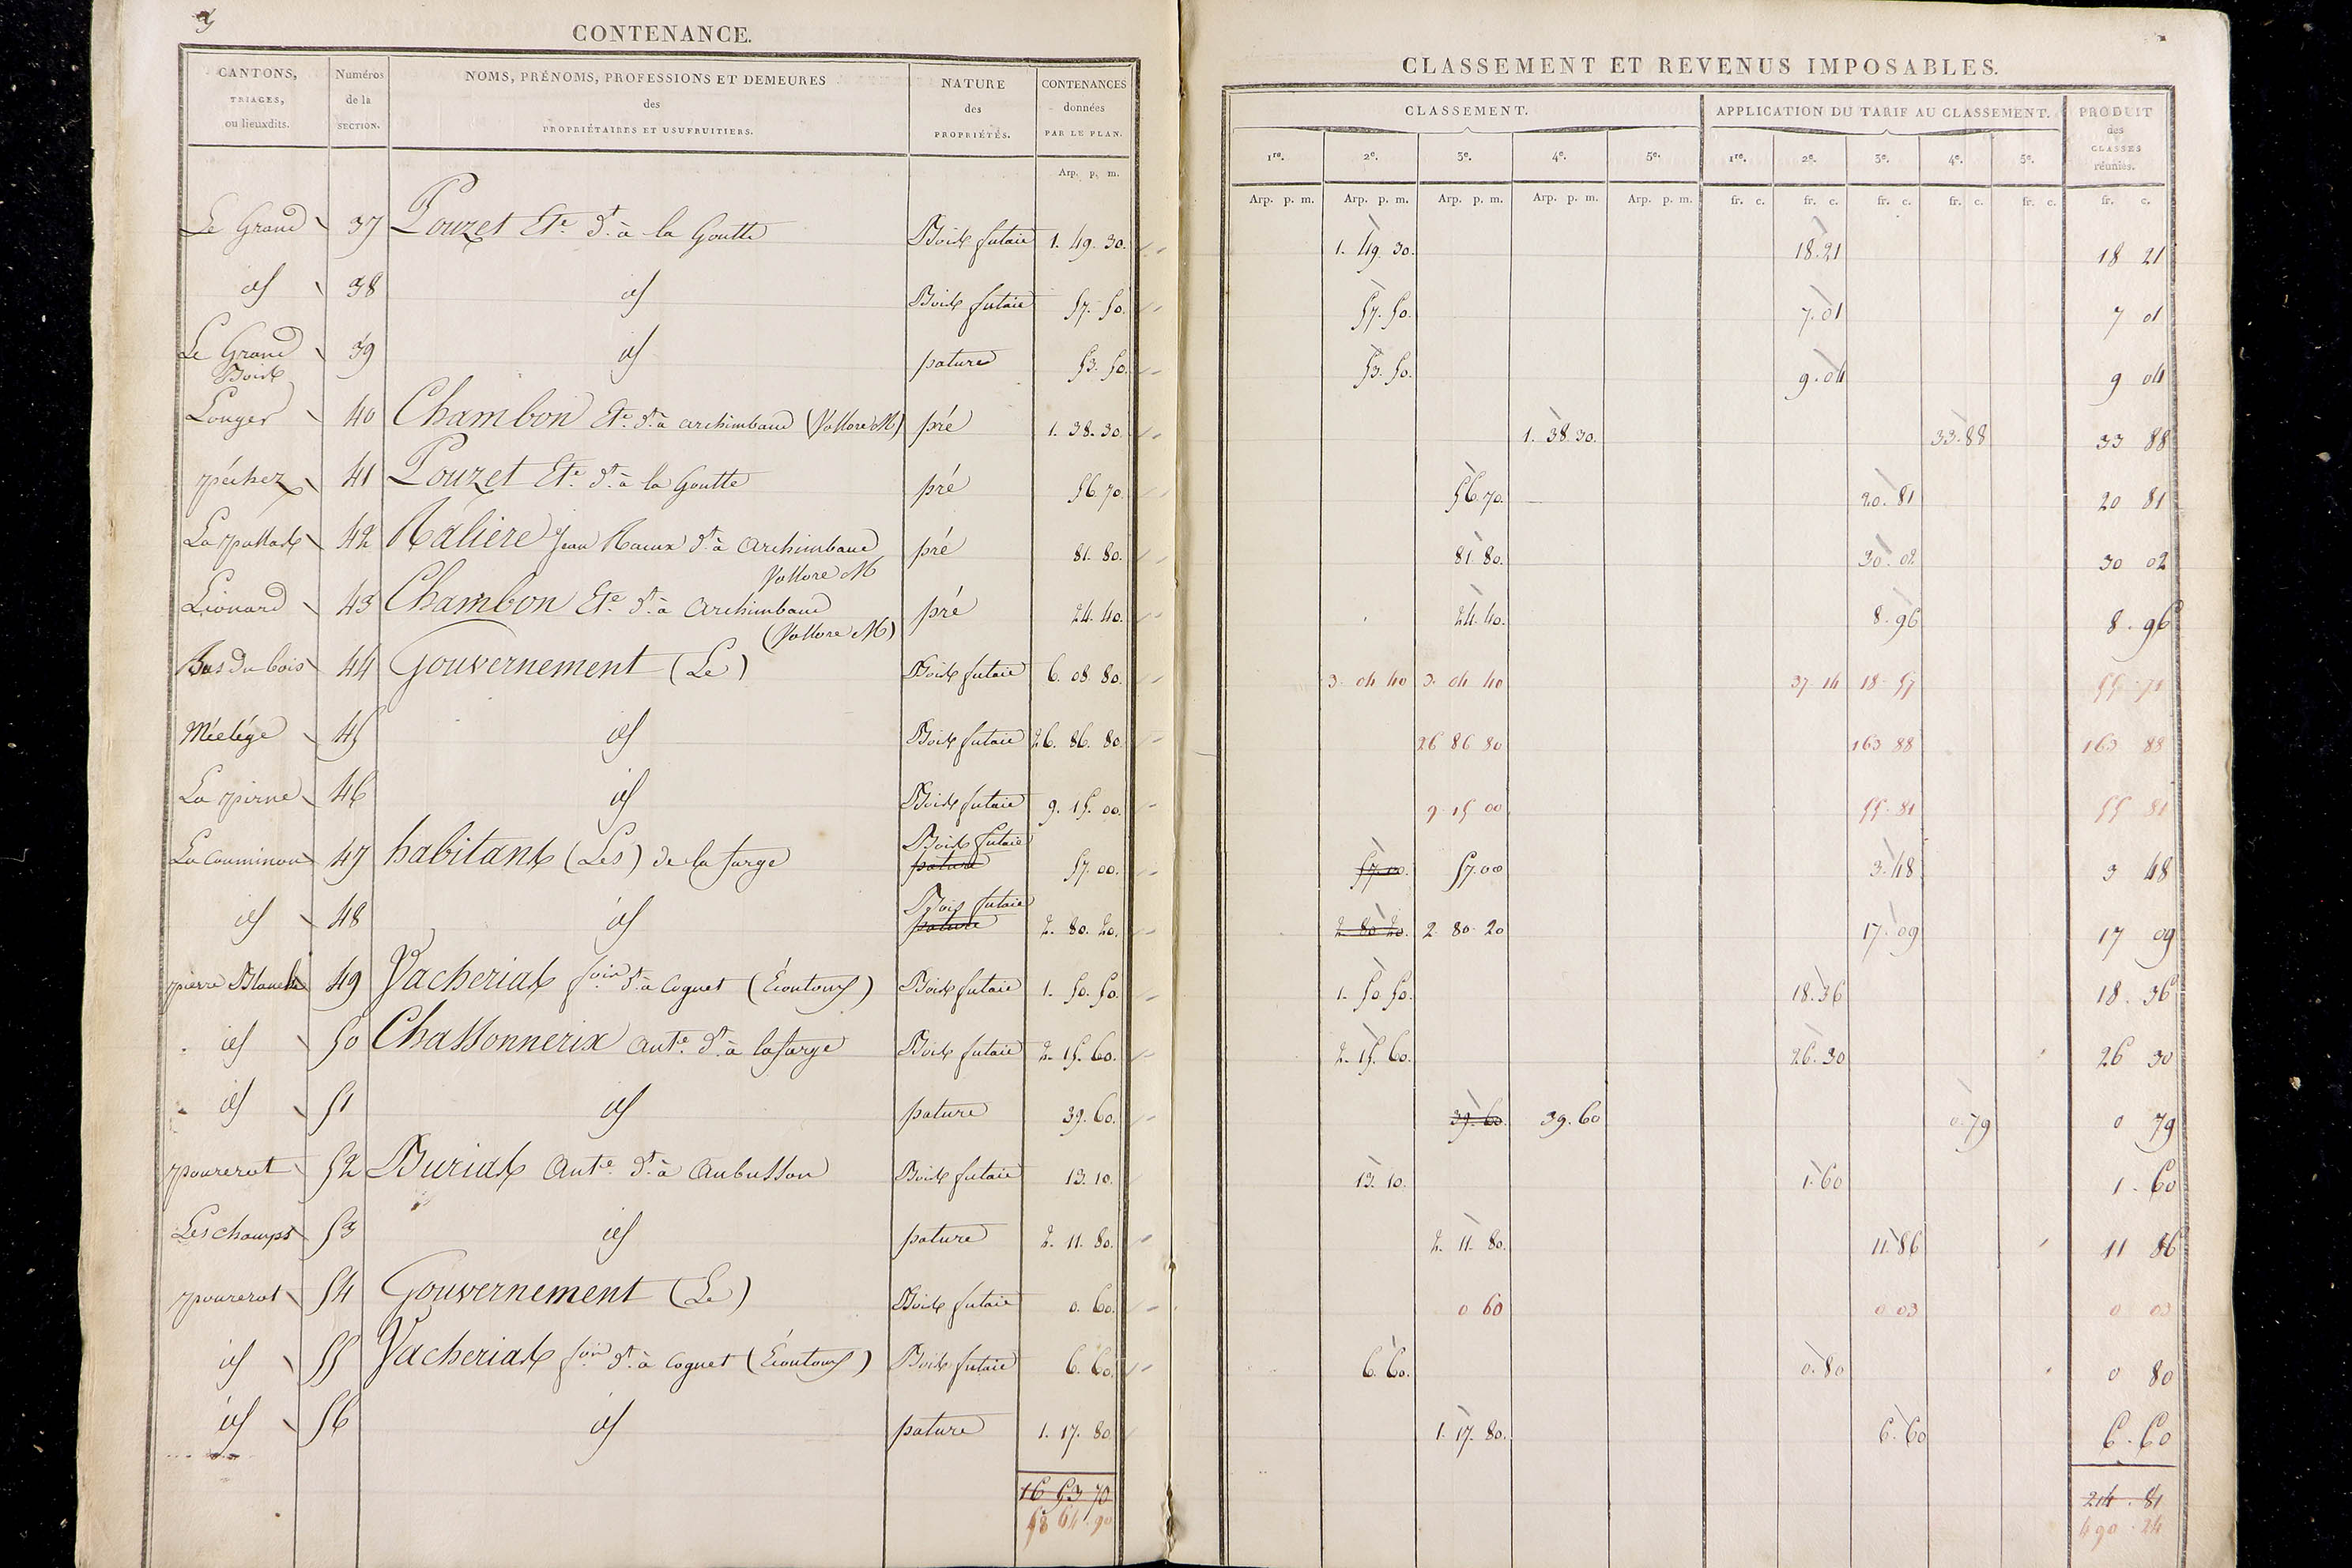 CONTENANCE.
CLASSEMENT ET REVENUS IMPOSABLES.
CANTONS, TRIAGES, ou lieuxdits. Numéros de la SECTION. NOMS, PRÉNOMS, PROFESSIONS ET DEMEURES des PROPRIÉTAIRES ET USUFRUITIERS. NATURE des PROPRIÉTÉS. CONTENANCES données PAR LE PLAN.
CLASSEMENT. APPLICATION DU TARIF AU CLASSEMENT. PRODUIT des CLASSES réunies.
1re. 2e. 3e. 4e. 5e. 1re. 2e. 3e. 4e. 5e.
Arp. p. m. Arp. p. m. Arp. p. m. Arp. p. m. Arp. p. m. Arp. p. m. fr. c. fr. c. fr. c. fr. c. fr. c. fr. c.
Le Grand 37 Pouzet Ete. dt. à la Goutte Bois futaie 1. 49. 30. 1. 49. 30. 18.21 18 21
id 38 id Bois futaie 57. 50. 57. 50. 7.01 7 01
Le Grand Bois 39 id pature 53. 50. 53. 50. 9.04 9 04
Longer 40 Chambon Ete. dt. à archimbaud (Vollore M) pré 1. 38. 30. 1. 38. 30. 33.88 33 88
péchez 41 Pouzet Ete. dt. à la Goutte pré 56 70. 56. 70. 20. 81 20 81
42 jean dt. à archimbaud Vollore M pré 81. 80. 81. 80. 30. 02 30 02
Lionard 43 Chambon Ete. dt. à archimbaud (Vollore M) pré 24. 40. 24. 40. 8.96 8. 96
Bas du bois 44 Gouvernement (Le) Bois futaie 6. 08 80. 3 04 40 3. 04 40 37.14 18.57 55 71
45 id Bois futaie 26. 86. 80. 26 86 80 163 88 163 88
46 id Bois futaie 9. 15. 00. 9.15 00 55.81 55 81
47 habitants (Les) de la farge Bois futaie pature 57. 00. 57.00. 57.00 3.48 3 48
id 48 id Bois futaie pature 2. 80. 20. 2. 80 20. 2 80 20 17.09 17 09
pierre Blanche 49 Vacherias dt. à Coguet (Escoutoux) Bois futaie 1. 50. 50. 1. 50. 50. 18.36 18. 36
id 50 Chassonnerix ante. dt. à la farge Bois futaie 2. 15. 60. 2. 15. 60. 26.30 26 30
id 51 id pature 39. 60. 39. 60. 39. 60 0.79 0 79
pourerat 52 Burias Ante. dt. à Aubusson Bois futaie 13. 10. 13. 10. 1.60 1. 60
Les champs 53 id pature 2. 11. 80. 2. 11. 80. 11.86 11 86
pourerat 54 Gouvernement (Le) Bois futaie 0. 60. 0 60 0 03 0 03
id 55 Vacherias dt. à Coguet (Escoutoux) Bois futaie 6. 60. 6. 60. 0.80 0 80
id 56 id pature 1. 17. 80 1. 17. 80. 6.60 6. 60
16 53 70 214. 81
58 64 90 490. 24